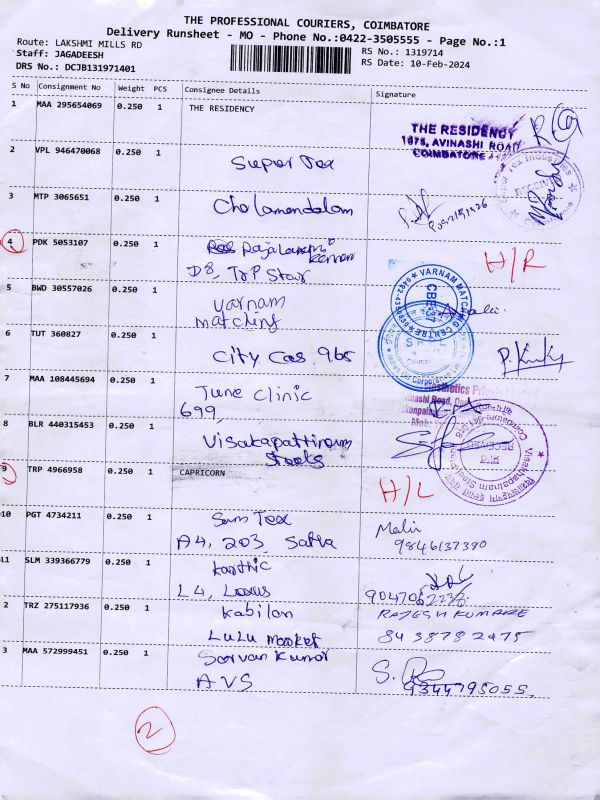 THE PROFESSIONAL COURIERS, COIMBATORE
Delivery Runsheet - MO - Phone No.:0422-3505555 - Page No.:1
Route: LAKSHMI MILLS RD
Staff: JAGADEESH
DRS No.: DCJB131971401
RS No.: 1319714
RS Date: 10-Feb-2024
S No Consignment No Weight PCS Consignee Details Signature
1 MAA 295654069 0.250 1 THE RESIDENCY
THE RESIDENCY
1076, AVINASHI ROAD
COIMBATORE
2 VPL 946470068 0.250 1 Super Tex
3 MTP 3065651 0.250 1 Cholamandalam
4 PDK 5053107 0.250 1 Rajalaxmi H/R
D8, TRP Star
5 BWD 30557026 0.250 1 varnam
matching
VARNAM MATCHING CENTRE
CBE-37
6 TUT 360827 0.250 1 City Cas 965
7 MAA 108445694 0.250 1 June Clinic
699,
8 BLR 440315453 0.250 1 Visakapattinam
Steels
9 TRP 4966958 0.250 1 CAPRICORN H/L
10 PGT 4734211 0.250 1 Sam Tex
A4, 203, Satva
9846137390
11 SLM 339366779 0.250 1 Karthic
L4, Lexus
2 TRZ 275117936 0.250 1 Kabilan RAJESH KUMAR
LuLu market 84 3873 2475
3 MAA 572999451 0.250 1 Sarvan Kumar
AVS 9344795055
2